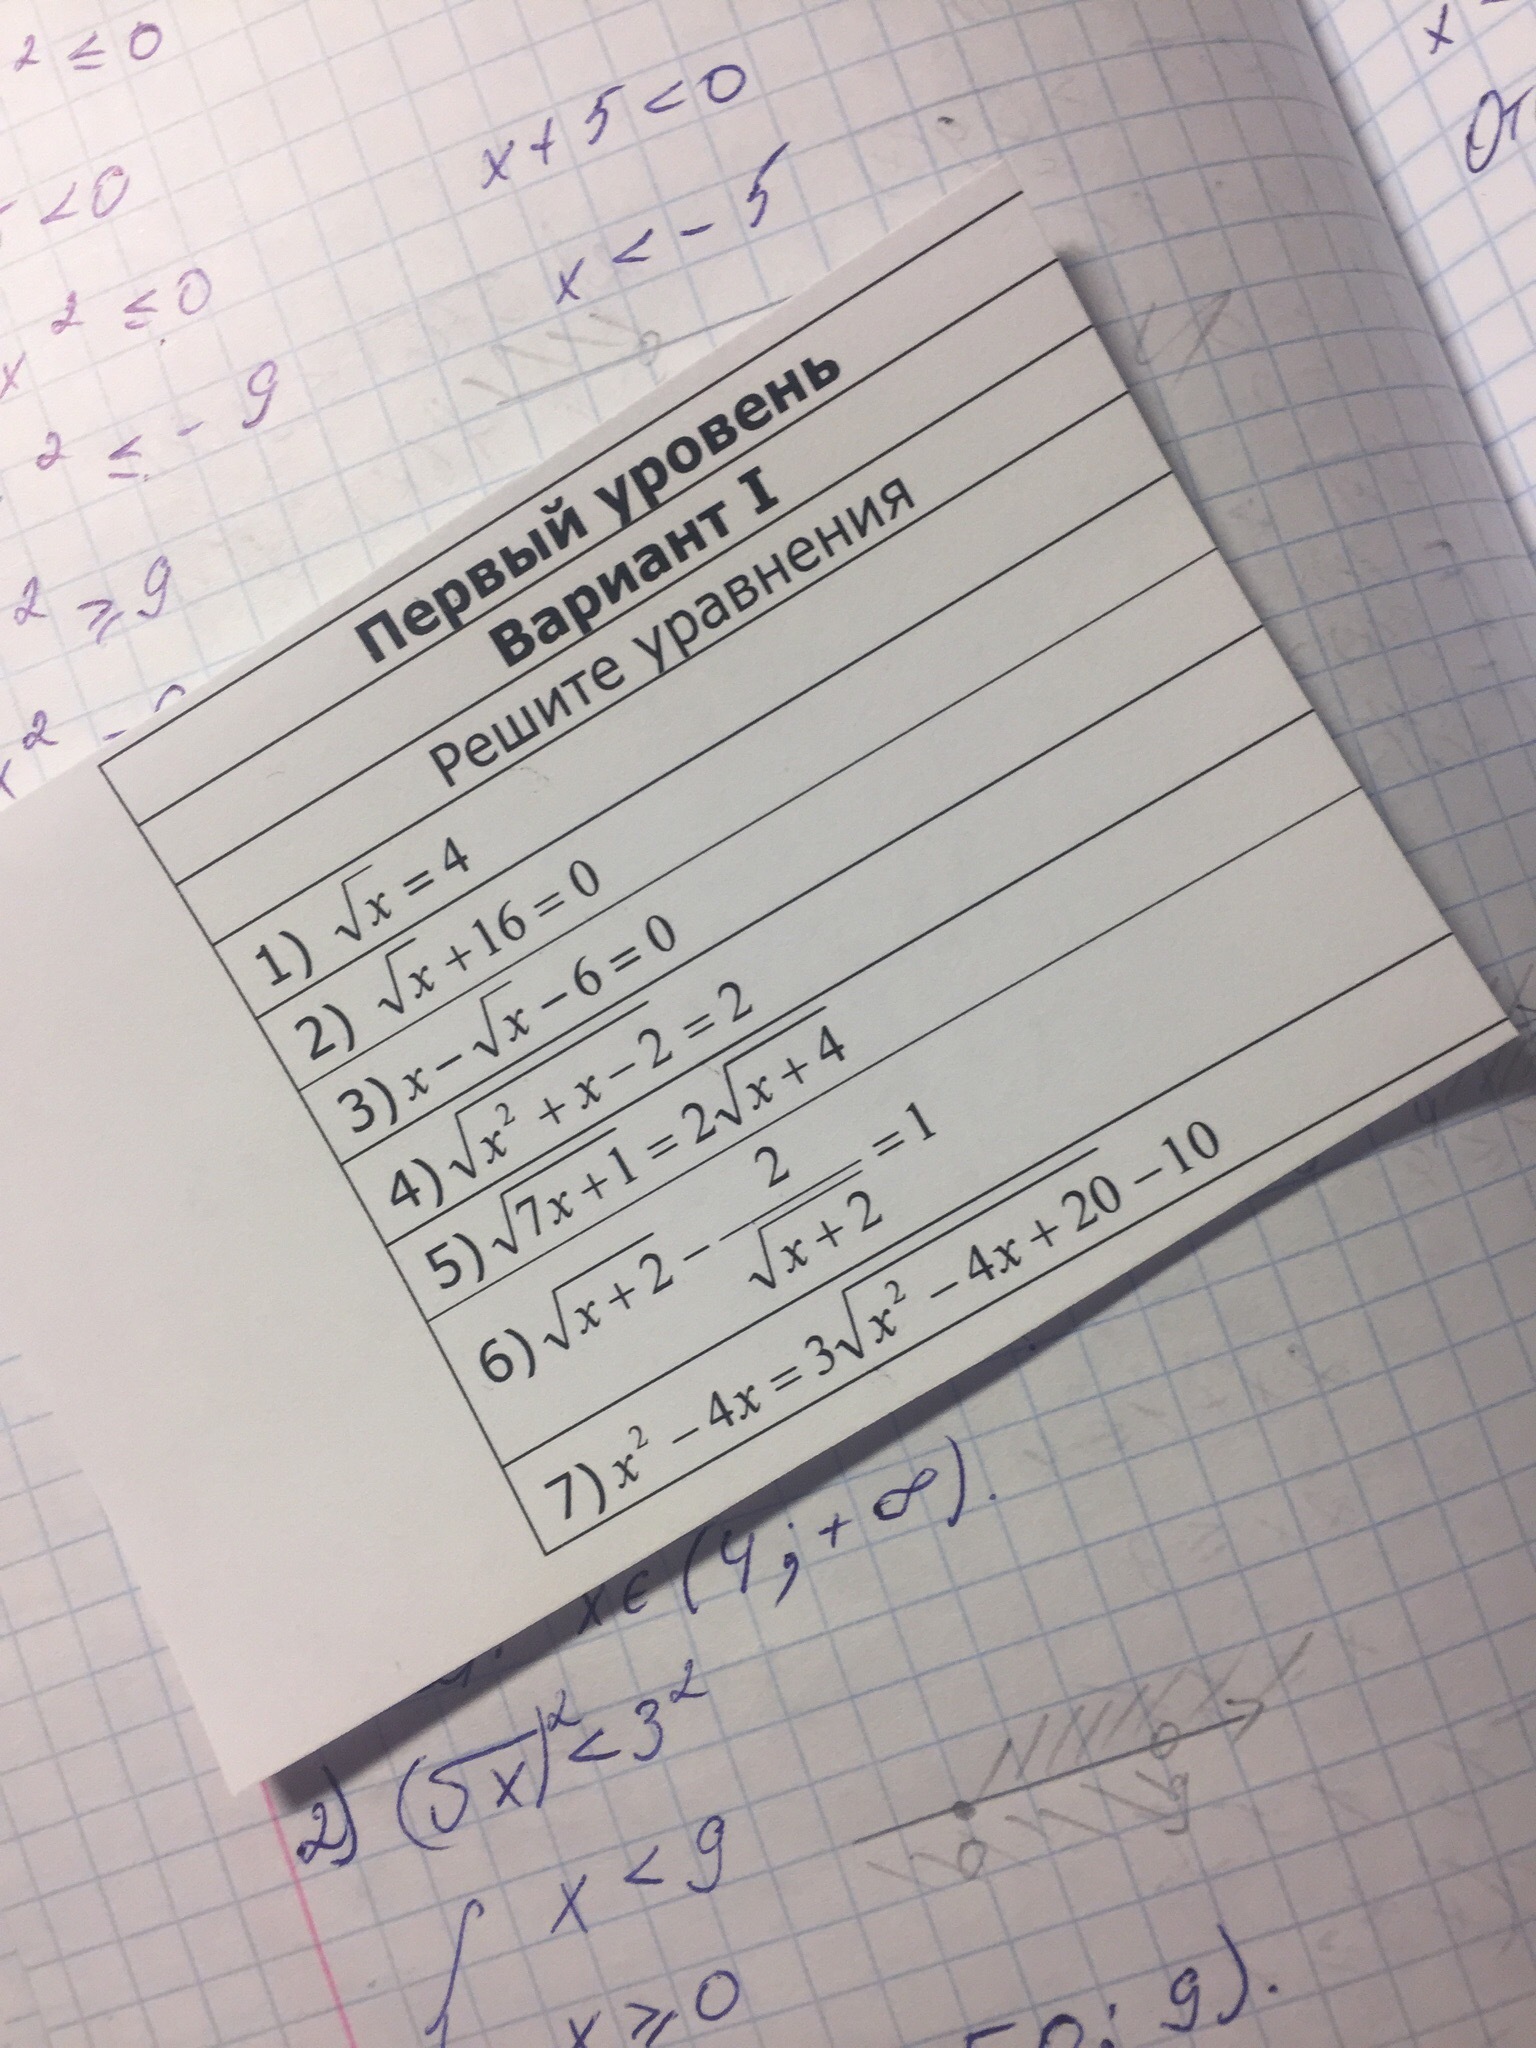 2 ≤ 0
< 0
x 2 ≤ 0
2 ≤ - 9
2 ≥ 9
x 2 -
x + 5 < 0
x < - 5
x
От
Первый уровень
Вариант I
Решите уравнения
1) √x = 4
2) √x + 16 = 0
3) x − √x − 6 = 0
4) √(x² + x − 2) = 2
5) √(7x + 1) = 2√(x + 4)
6) √(x + 2) − 2/√(x + 2) = 1
7) x² − 4x = 3√(x² − 4x + 20) − 10
x ∈ (4; + ∞).
2) (√x)² < 3²
x < 9
x ≥ 0
0 9
0; 9).